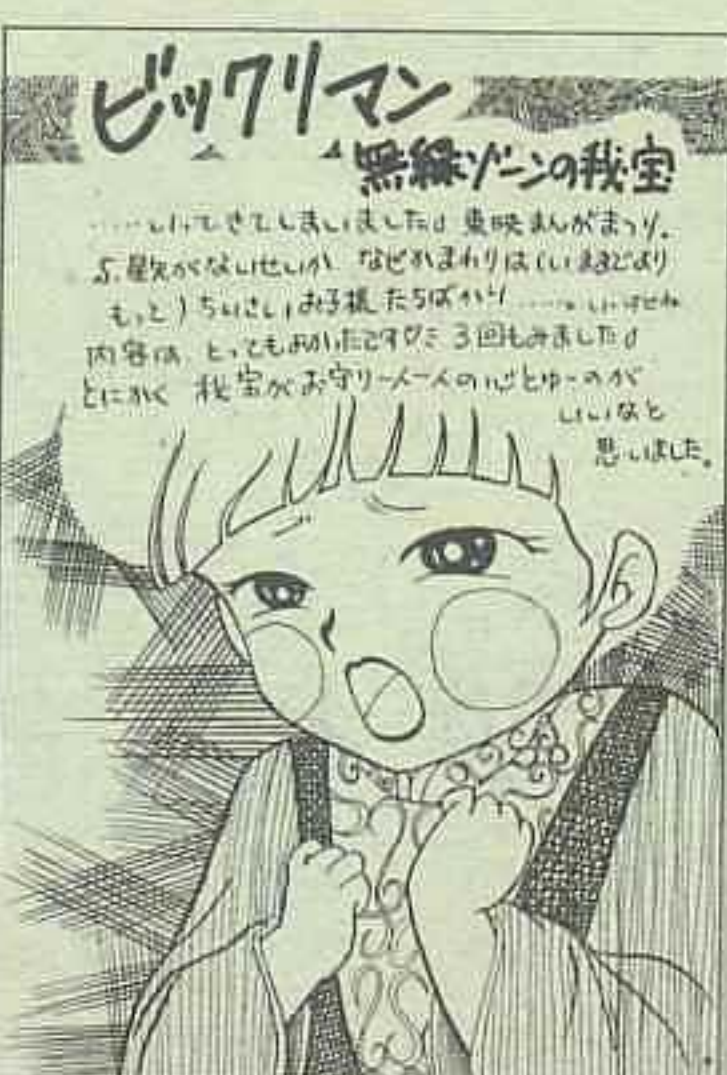 ビックリマン
無縁ゾーンの秘宝
……いってきてしまいました♪ 東映まんがまつり。
星矢がないせいか なぜかまわりは(いままでより
もっと)ちいさいお子様たちばかり……。
内容は、とってもよかったです♡ 3回もみました♪
とにかく 秘宝がお守り一人一人の心とゆーのが
いいなと
思いました。